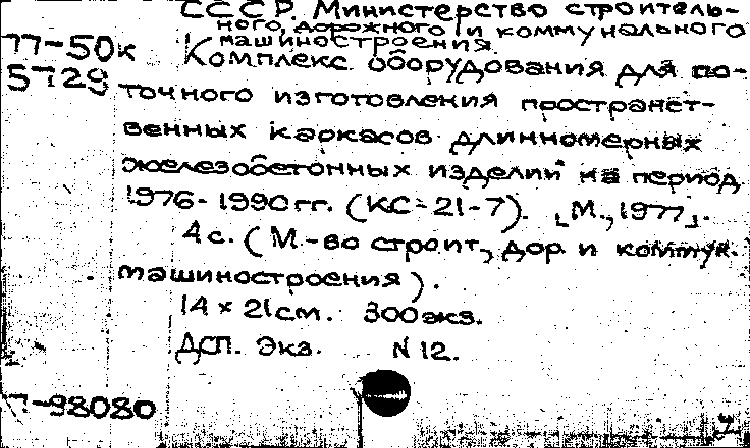 СССР. Министерство строитель-
ного, дорожного и коммунального
машиностроения.
77-50к
5729
Комплекс оборудования для по-
точного изготовления пространст-
венных каркасов длинномерных
железобетонных изделий на период
1976-1990 гг. (КС-21-7). [М., 1977].
4 с. (М-во строит., дор. и коммун.
машиностроения).
14 × 21 см. 300 экз.
ДСП. Экз. N 12.
7-98080